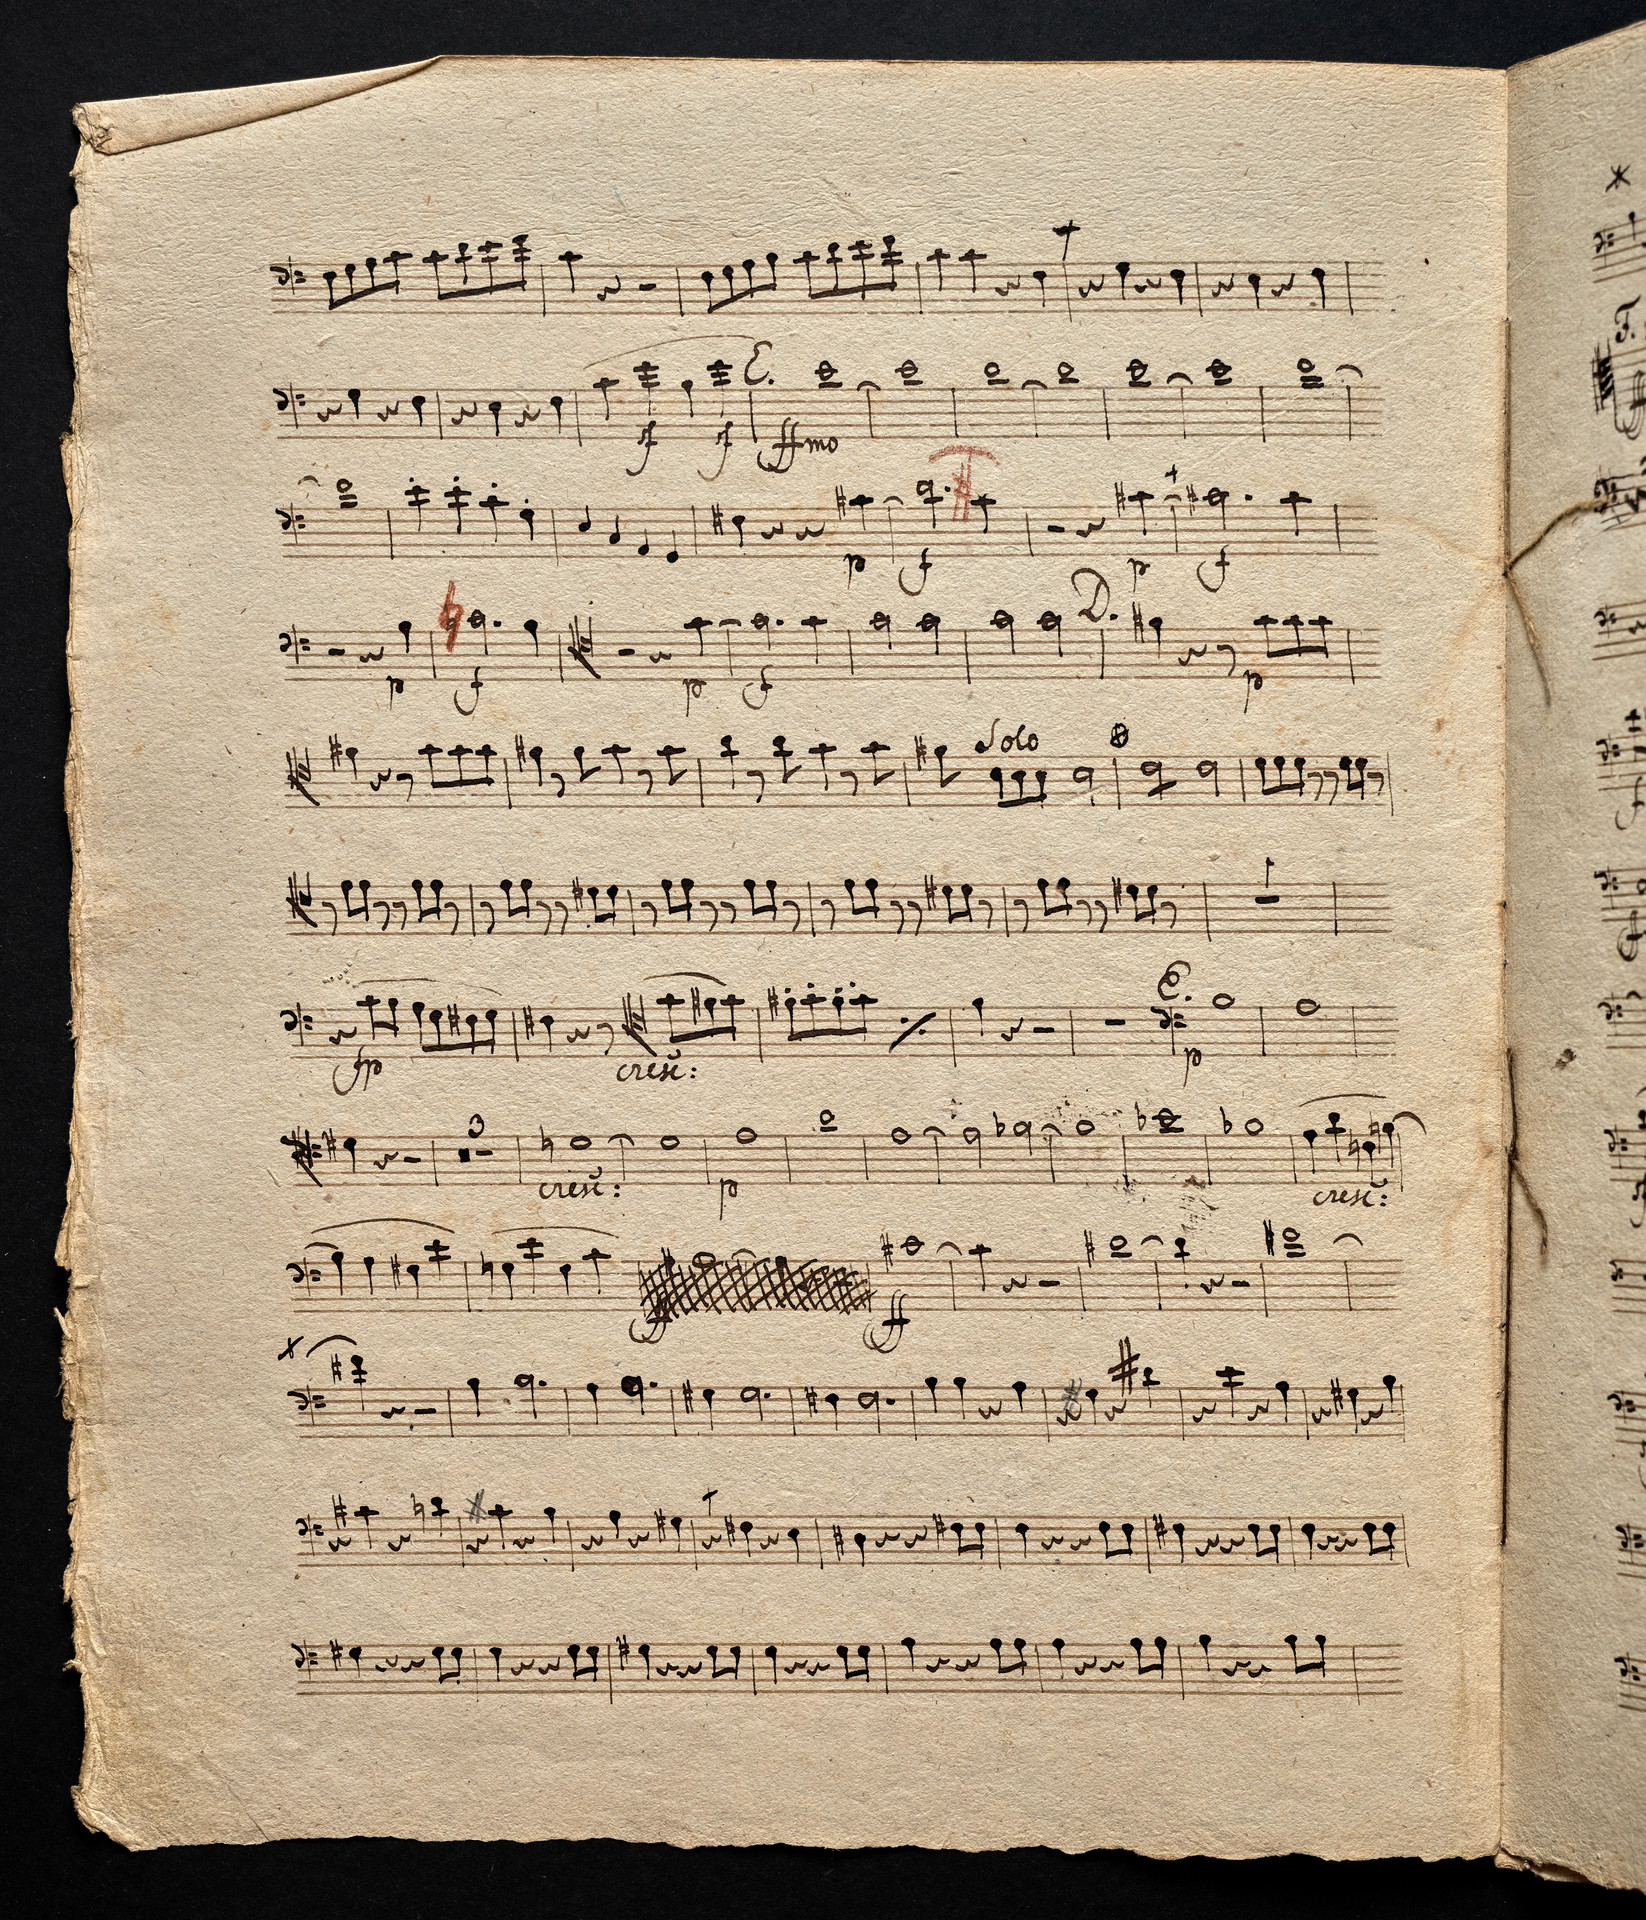 E.
f f ffmo
p f p f
D.
p f p f p
Solo
E.
fp cresc: p
3
cresc: p cresc:
ff